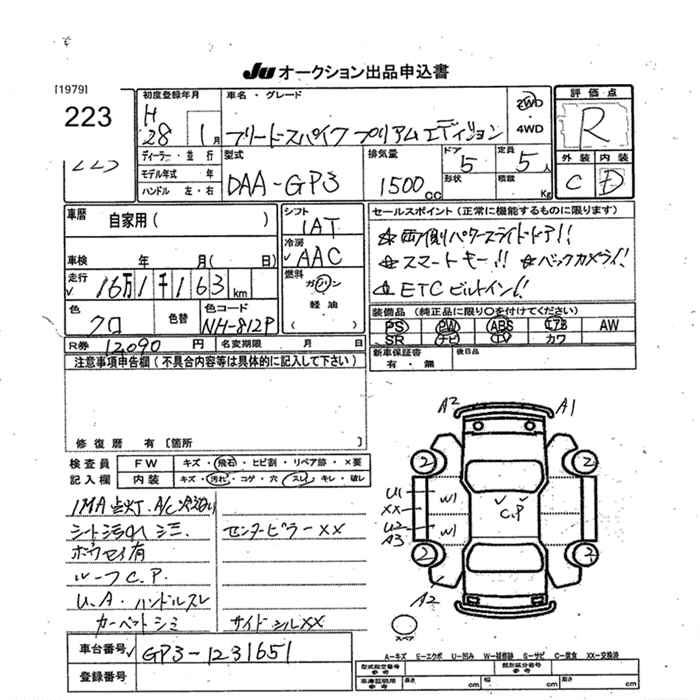 JU オークション出品申込書
[1979]
223
初度登録年月
H
28 1 月
車名・グレード
フリードスパイク プリアムエディション
2WD
・
4WD
評価点
R
外装 内装
C D
ディーラー・並行
モデル年式 年
ハンドル 左・右
型式
DAA-GP3
排気量
1500 cc
ドア
5
形状
定員
5 人
積載
Kg
車歴
自家用( )
車検 年 月( 日)
走行
16万1千163 km
色
クロ
色替
色コード
NH-812P
シフト
IAT
冷房
AAC
燃料
ガソリン
軽油
( )
セールスポイント(正常に機能するものに限ります)
☆両側パワースライドドア!!
☆スマートキー!! ☆バックカメラ!!
☆ETCビルトイン!!
装備品(純正品に限り○を付けてください)
PS PW ABS エアB AW
SR ナビ TV カワ
新車保証書
有・無
後日品
R券 12,090 円
名変期限 月 日
注意事項申告欄(不具合内容等は具体的に記入して下さい)
修復歴 有[箇所 ]
検査員
記入欄
FW キズ・飛石・ヒビ割・リペア跡・×要
内装 キズ・汚れ・コゲ・穴・スレ・キレ・破レ
IMA点灯.A/C
シート汚れシミ.
ボウセイ有
ルーフC.P.
U.A.ハンドルスレ
カーペットシミ
センターピラーXX
サイドシルXX
A2 A1
2 2
U1 W1
XX
U2 W1
A3
C.P
2 2
A2
スペア
A-キズ E-エクボ U-凹み W-補修跡 S-サビ C-腐食 XX-交換済
車台番号 GP3-1231651
登録番号
型式指定番号
参考
類別区分番号
参考
車庫証明用
参考
長さ cm 幅 cm 高さ cm